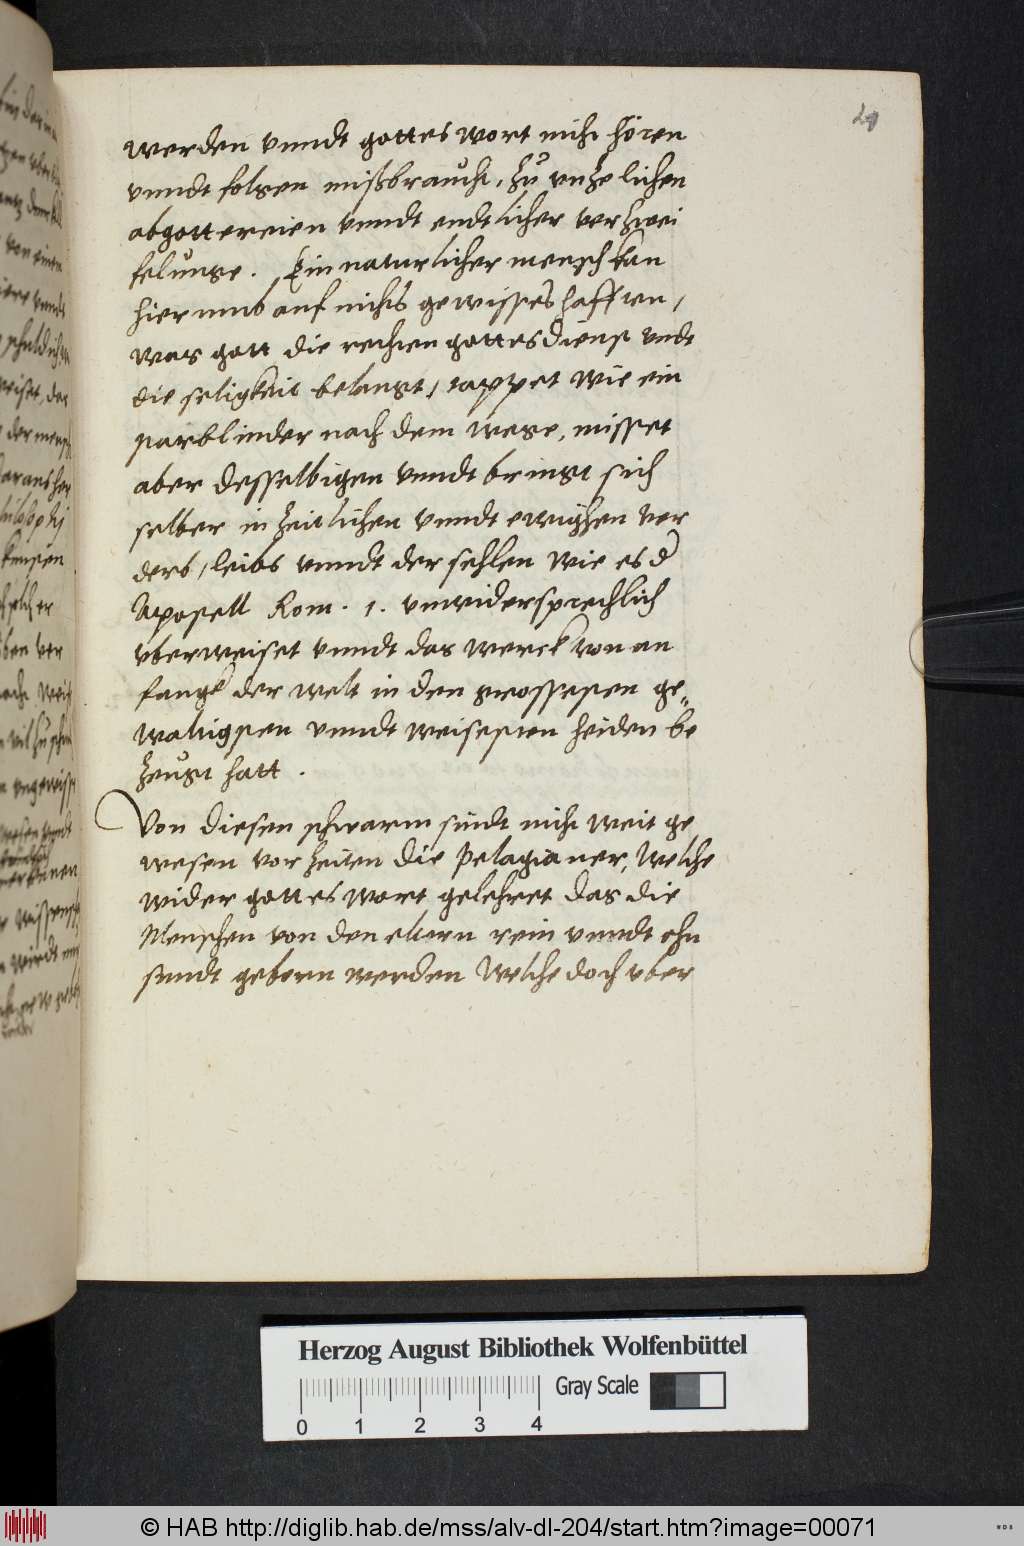 werden vnndt gottes wort nicht hören
vnndt folgen mißbraucht, zu vnzelichen
abgottereien vnndt endtlicher verzwei
felunge. Ein naturlicher mensch kan
hierumb auf nichts gewisses hafften,
was gott die rechten gottesdienst vndt
die seligkeit belangt, tappet wie ein
starblinder nach dem wege, misset
aber desselbigen vnndt bringt sich
selber in zeitlichen vnndt ewighen ver
derb, leibs vnndt der sehlen wie es d
Apostell Rom. 1. vnwidersprechlich
vberweiset vnndt das werck von an
fange der welt in den grossesten ge„
waltigsten vnndt weisesten heiden be
zeugt hatt.
Von diesen schwarm sindt nicht weit ge
wesen vor zeiten die Pelagianer, Welche
wider gottes wort gelehret das die
Menschen von den eltern rein vnndt ohn
sundt geborn werden Welche doch vber
Herzog August Bibliothek Wolfenbüttel
0 1 2 3 4 Gray Scale
© HAB http://diglib.hab.de/mss/alv-dl-204/start.htm?image=00071